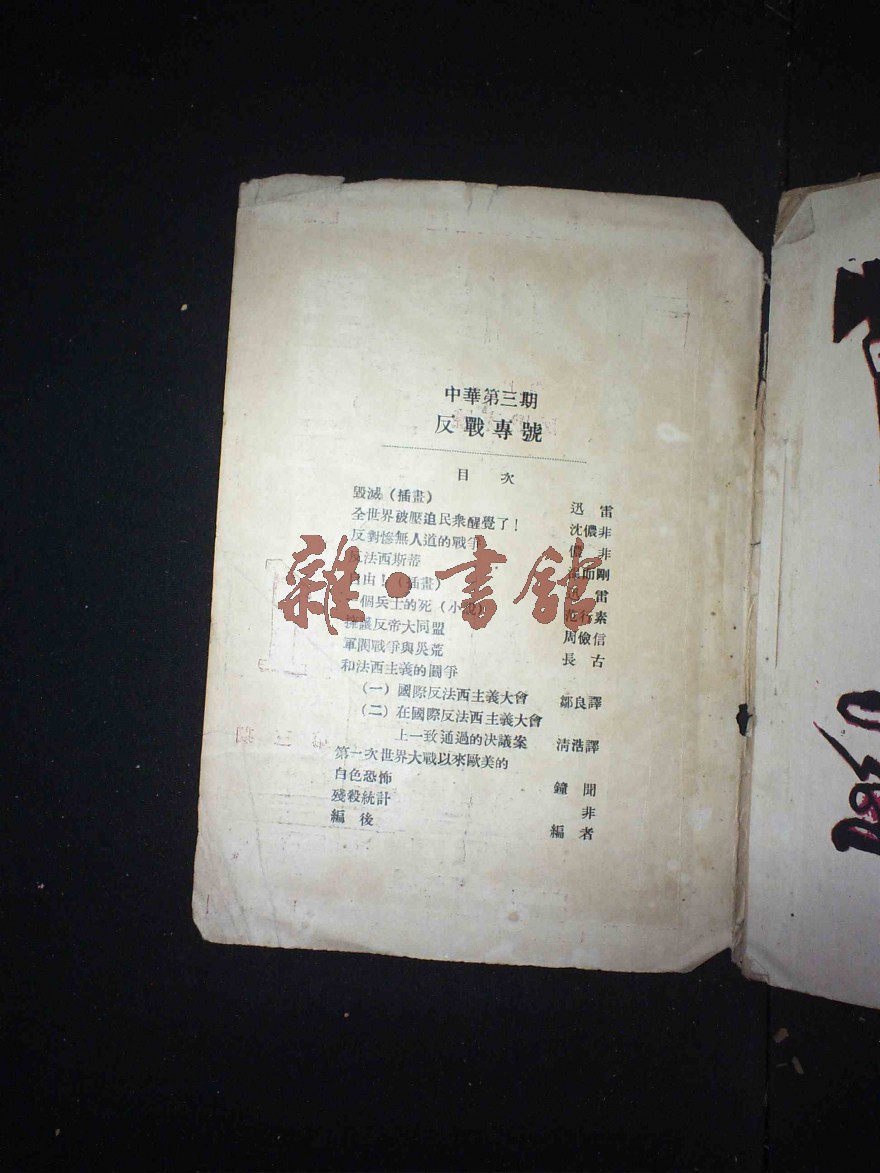 中華第三期
反戰專號
目次
毀滅(插畫) 迅雷
全世界被壓迫民衆醒覺了! 沈儂非
反對慘無人道的戰爭 非
反法西斯蒂 剛
自由!(插畫) 雷
一個兵士的死(小說) 范行素
擁護反帝大同盟 周儉信
軍閥戰爭與災荒 長古
和法西主義的鬪爭
(一)國際反法西主義大會 鄒良譯
(二)在國際反法西主義大會
上一致通過的決議案 淸浩譯
第一次世界大戰以來歐美的
白色恐怖 鐘聞
殘殺統計 非
編後 編者
雜·書館